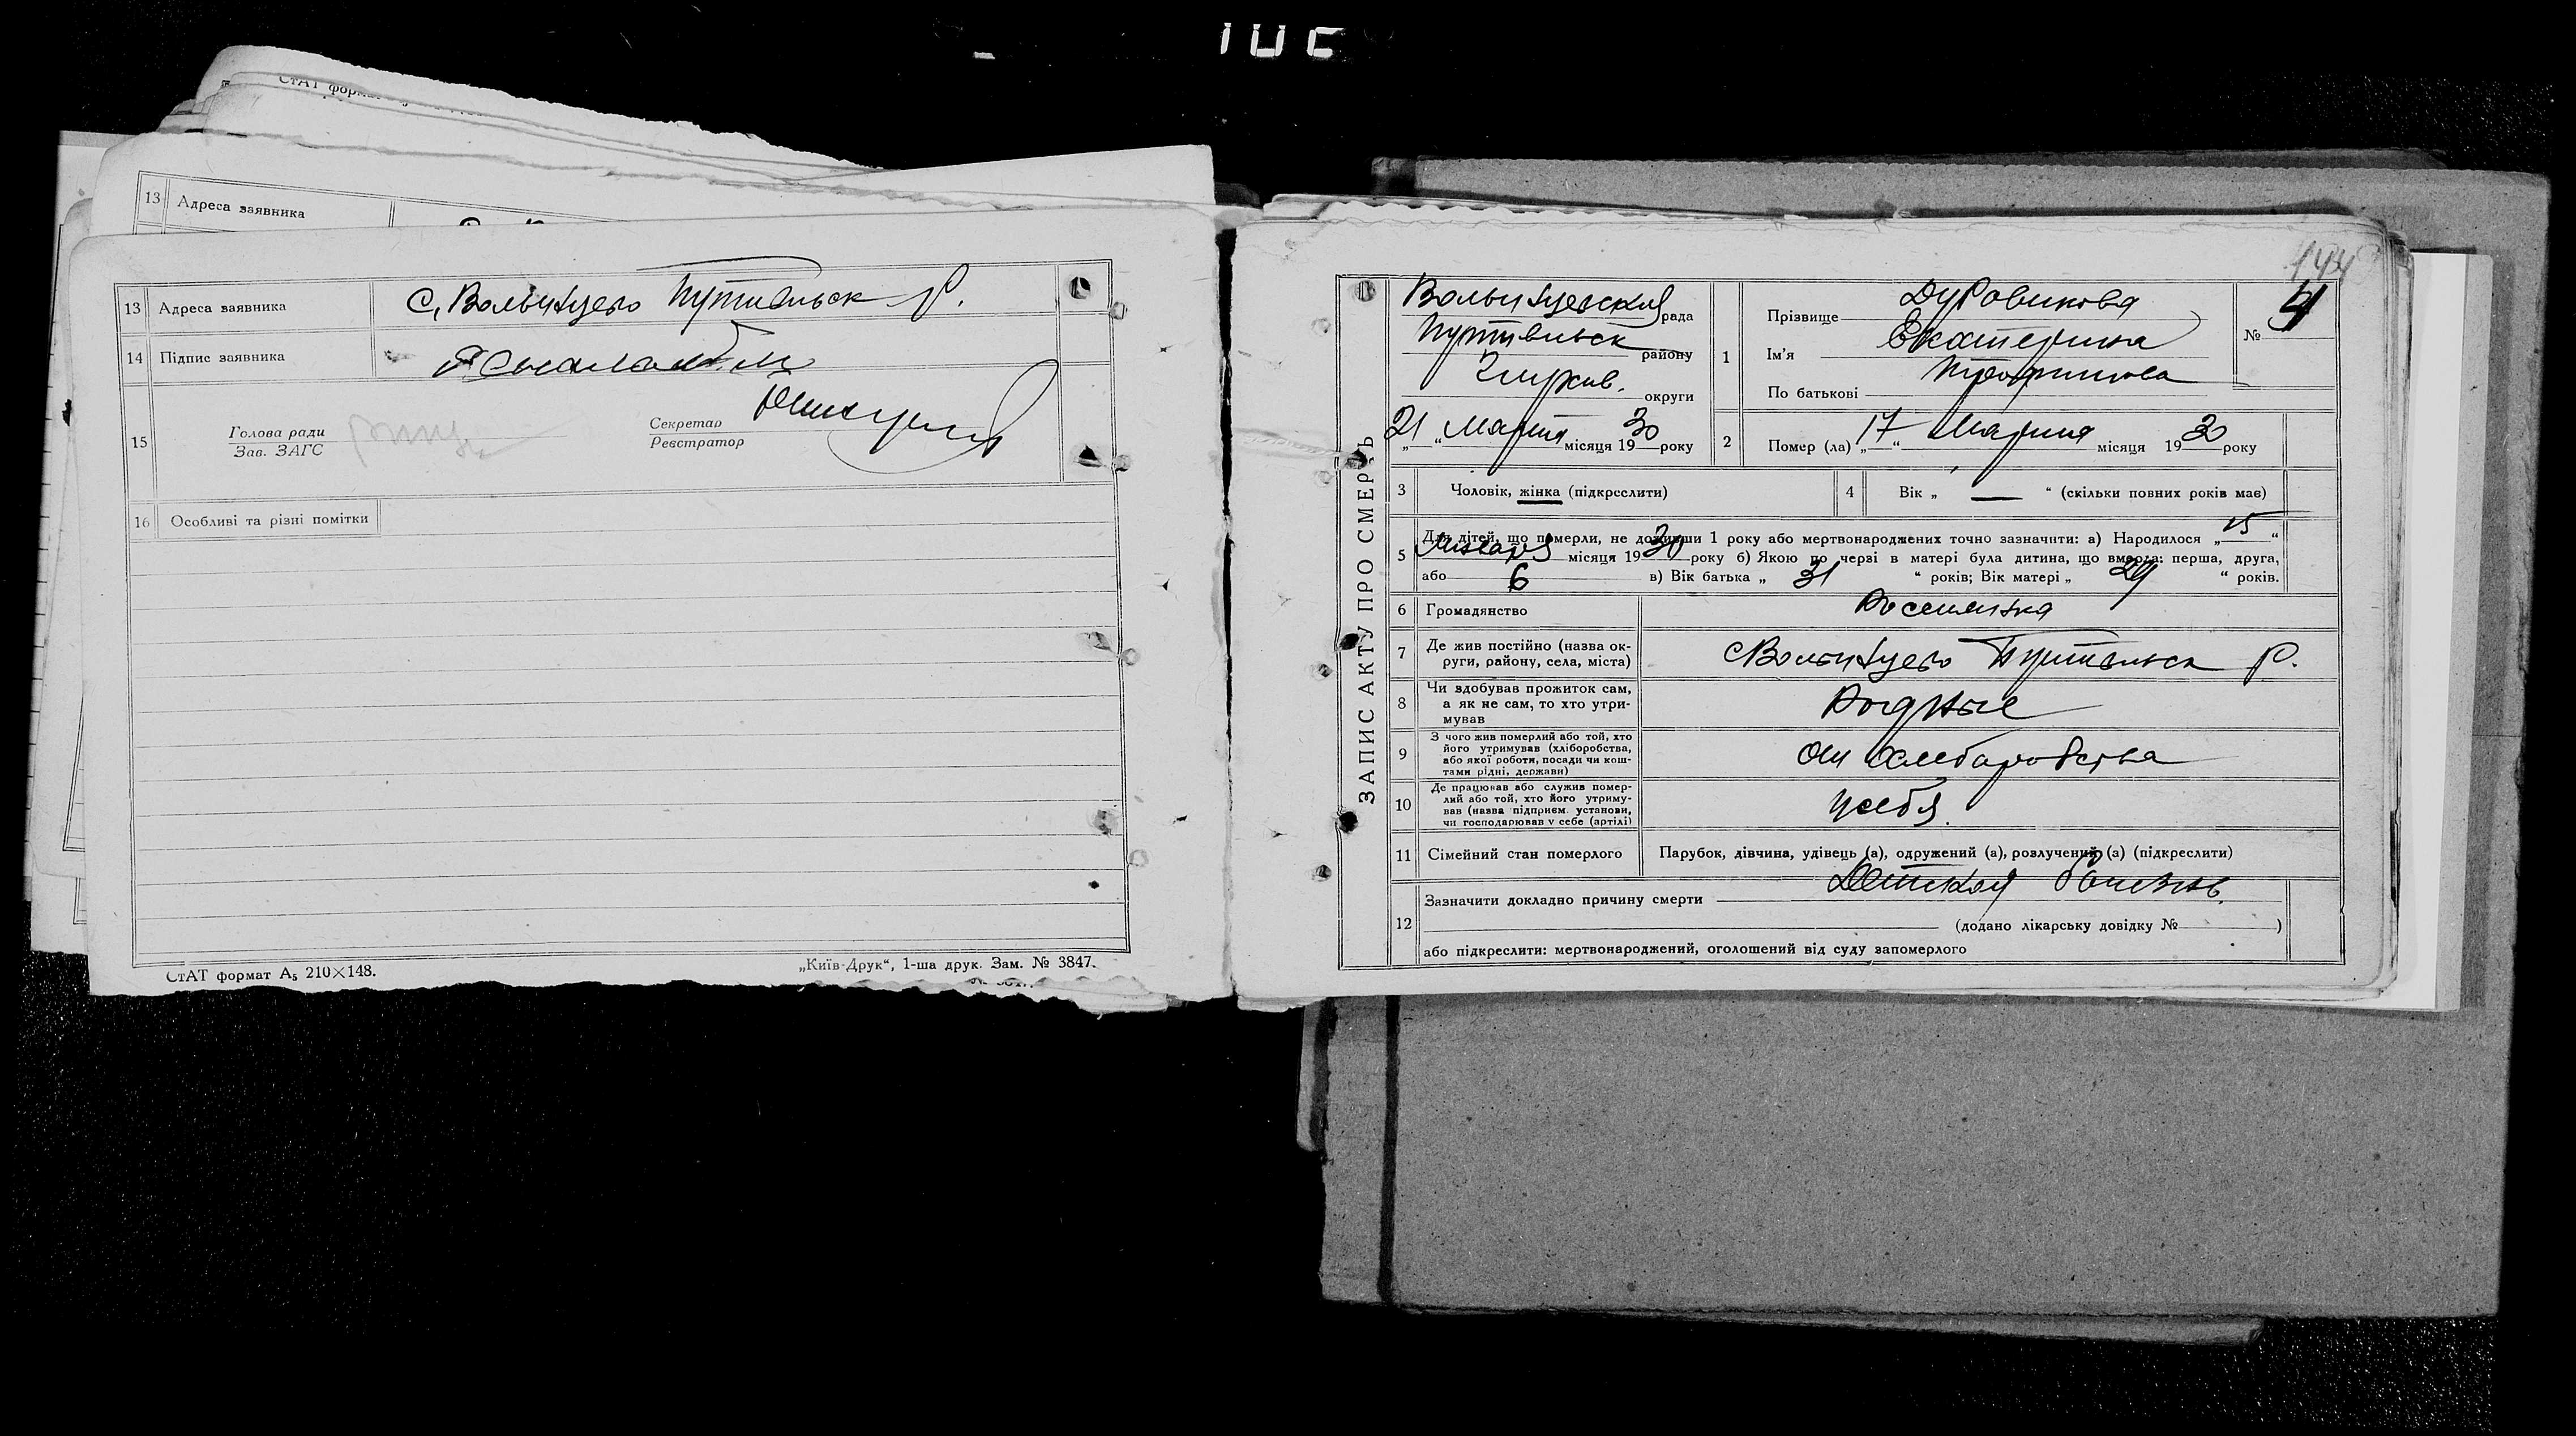 СтАТ формат
13 Адреса заявника
13 Адреса заявника С, Волынцево Путивльск р.
14 Підпис заявника
15 Голова ради
Зав. ЗАГС
Секретар
Реєстратор
16 Особливі та різні помітки
СтАТ формат А₅ 210×148.
„Київ-Друк“, 1-ша друк. Зам. № 3847.
144
ЗАПИС АКТУ ПРО СМЕРТЬ
Волынцевская рада
Путивльск району
Глухов. округи
21 „ “ Марта місяця 1930 року
1 Прізвище Дуровикова
Ім’я Екатерина
По батькові
№
2 Помер (ла) „17“ Марта місяця 1930 року
3 Чоловік, жінка (підкреслити)
4 Вік „ — “ (скільки повних років має)
5 Для дітей, що померли, не доживши 1 року або мертвонароджених точно зазначити: а) Народилося „15“
Января місяця 1930 року б) Якою по черзі в матері була дитина, що вмерла: перша, друга,
або 6 в) Вік батька „31“ років; Вік матері „29“ років.
6 Громадянство Россиянка
7 Де жив постійно (назва округи, району, села, міста) с Волынцево Путивльск р.
8 Чи здобував прожиток сам, а як не сам, то хто утримував Родные
9 З чого жив померлий або той, хто його утримував (хліборобства, або якої роботи, посади чи коштами рідні, держави) От хлебаробства
10 Де працював або служив померлий або той, хто його утримував (назва підприєм. установи, чи господарював у себе (артілі) У себя.
11 Сімейний стан померлого Парубок, дівчина, удівець (а), одружений (а), розлучений (з) (підкреслити)
12 Зазначити докладно причину смерти Детская болезнь.
(додано лікарську довідку № )
або підкреслити: мертвонароджений, оголошений від суду запомерлого